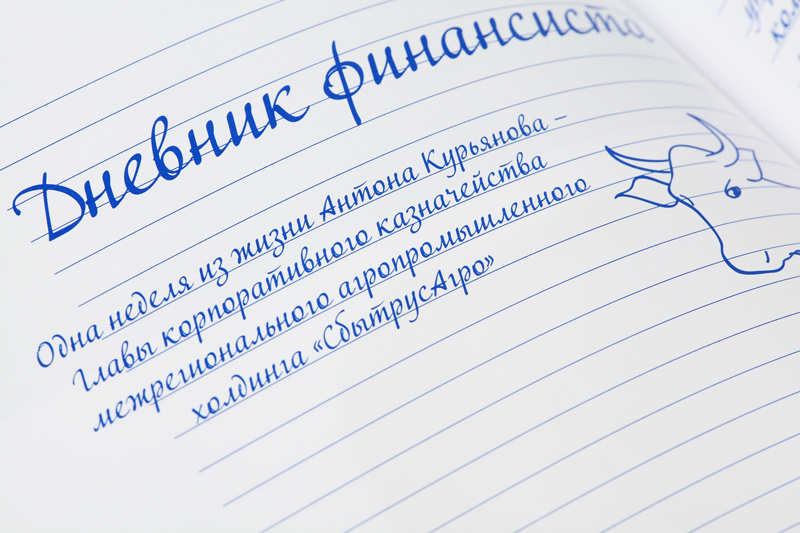 Дневник финансиста
Одна неделя из жизни Антона Курьянова –
Главы корпоративного казначейства
межрегионального агропромышленного
холдинга «СбытрусАгро»